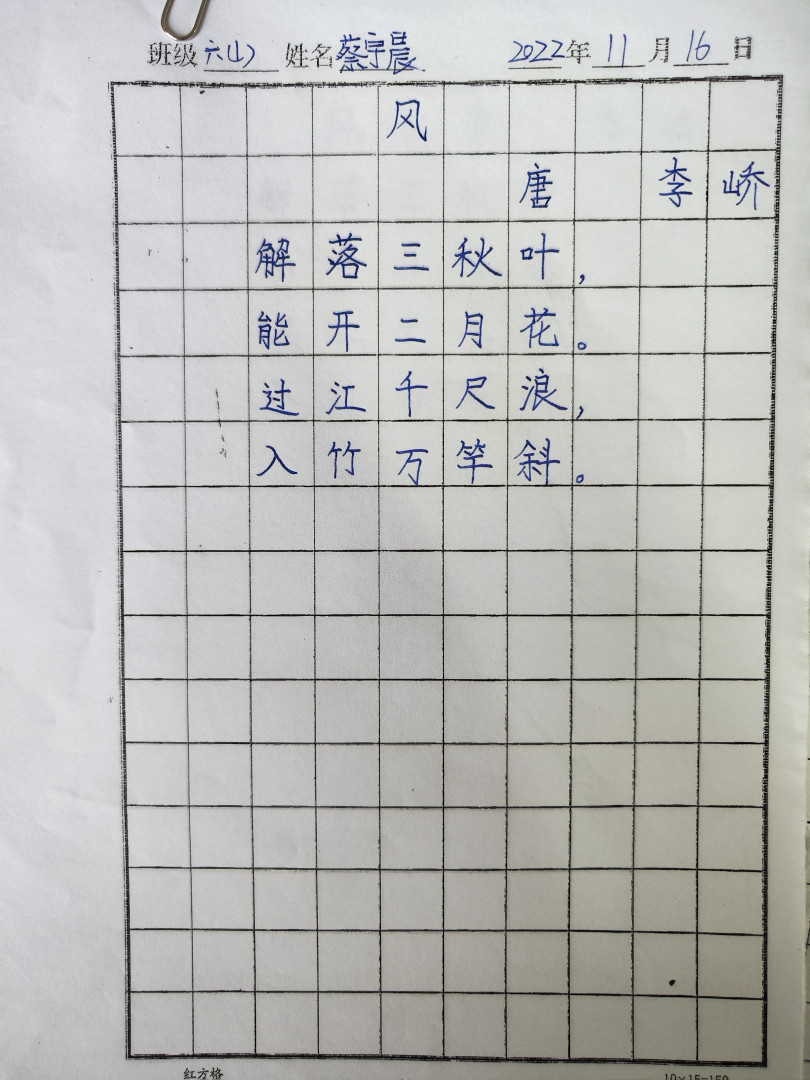 班级 六(1) 姓名 蔡宇晨 2022年 11 月 16 日
风
唐 李峤
解落三秋叶,
能开二月花。
过江千尺浪,
入竹万竿斜。
红方格 10×15=150